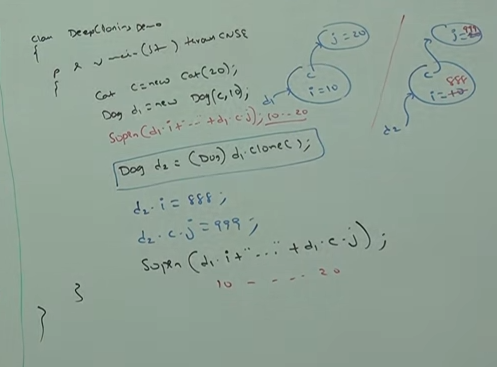 class DeepCloningDemo
{
p s v main( ) throws CNSE
{
Cat c=new Cat(20);
Dog d1=new Dog(c,10);
Sopln(d1.i+"---"+d1.c.j); 10---20
Dog d2 = (Dog) d1.clone();
d2.i = 888;
d2.c.j = 999;
Sopln(d1.i+"..."+d1.c.j);
10 - - - - 20
}
}
j=20
c
i=10
d1
j=999
c
888
i=10
d2